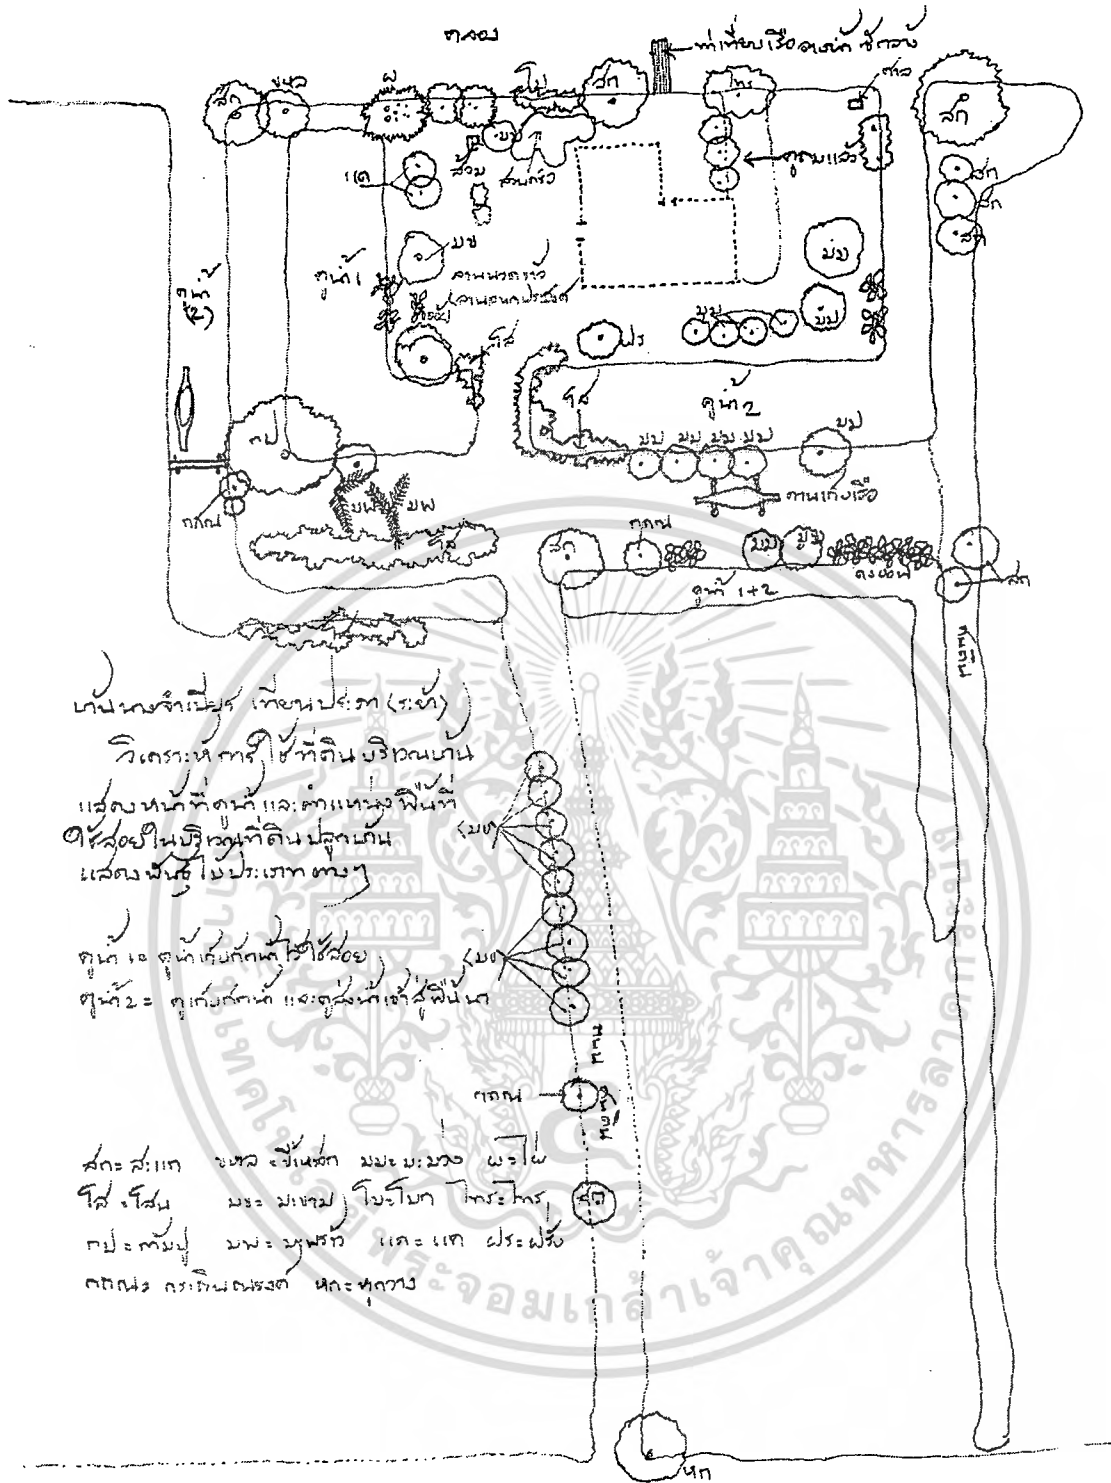 คลอง
ท่าเทียบเรือ อาบน้ำ ซักล้าง
สก
ขหล
ผ
โบ
สก
ไทร
ศาล
สก
มม
แค
ส้วม
สวนครัว
คูถมแล้ว
สก
สก
สก
มข
ลานนวดข้าว
(ลานอเนกประสงค์)
คูน้ำ 1
คูน้ำ
(2)
มม
มม
มม
โส
ฝร
โส
คูน้ำ 2
กป
มม มม มม มม
มม
คานเก็บเรือ
กถณ
มพ มพ
โส
สก
กถณ
มม
มม
สก
คูน้ำ 1+2
คันดิน
บ้านนางจำเนียร เทียนประภา (ระย้า)
วิเคราะห์การใช้ที่ดินบริเวณบ้าน
แสดงหน้าที่คูน้ำ และตำแหน่งพื้นที่
ใช้สอยในบริเวณที่ดินปลูกบ้าน
แสดงพันธุ์ไม้ประเภทต่างๆ
(มข)
คูน้ำ 1= คูน้ำเก็บกักน้ำไว้ใช้สอย
คูน้ำ 2= คูเก็บกักน้ำ และคูส่งน้ำเข้าสู่พื้นนา
(มข)
กถณ
สก
สก=สะแก ขหล=ขี้เหล็ก มม=มะม่วง ผ=ไผ่
โส=โสน มข=มะขาม โบ=โบก ไทร=ไทร
กป=ก้ามปู มพ=มะพร้าว แค=แค ฝร=ฝรั่ง
กถณ= กระถินณรงค์ หก=หูกวาง
หก
สถาบันเทคโนโลยีพระจอมเกล้าเจ้าคุณทหารลาดกระบัง